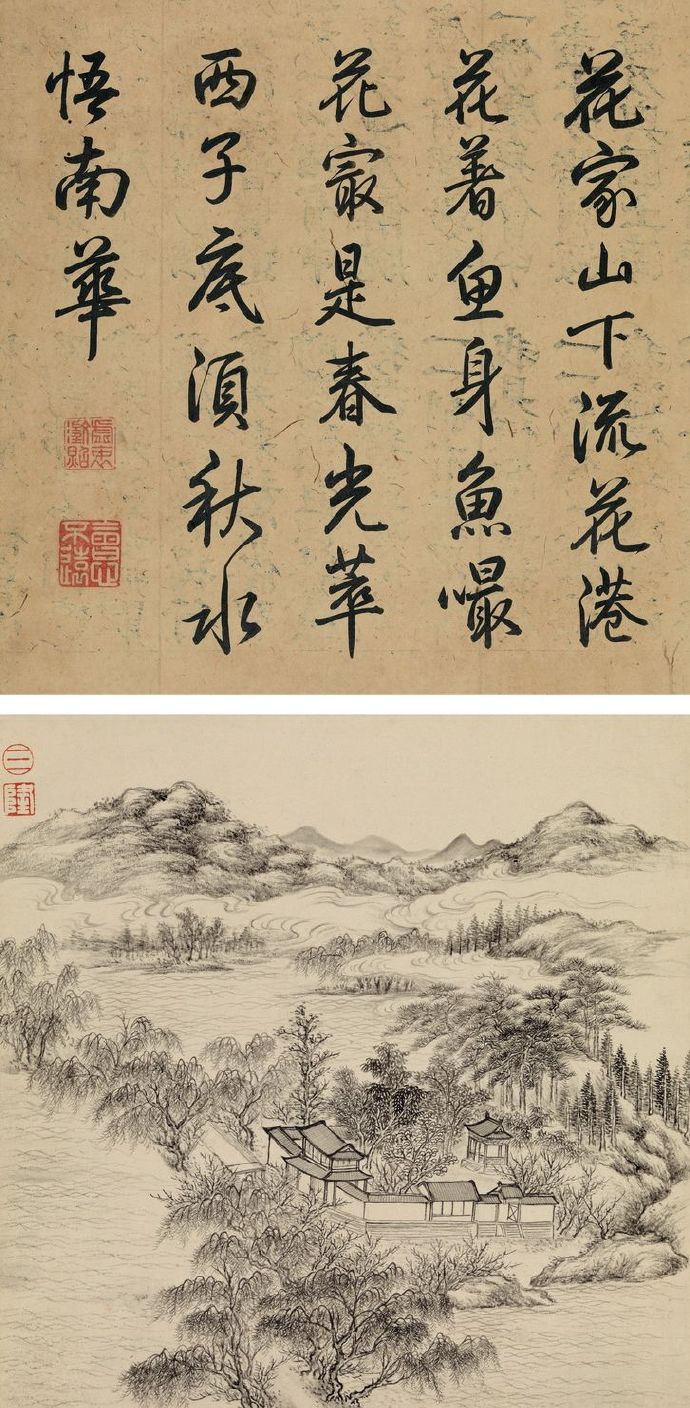 花家山下流花港
花著魚身魚嘬
花㝡是春光萃
西子底須秋水
悟南華
隆